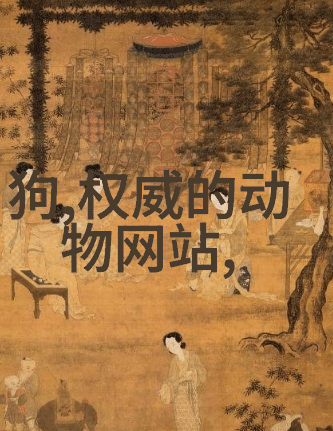 狗,权威的动
物网站,